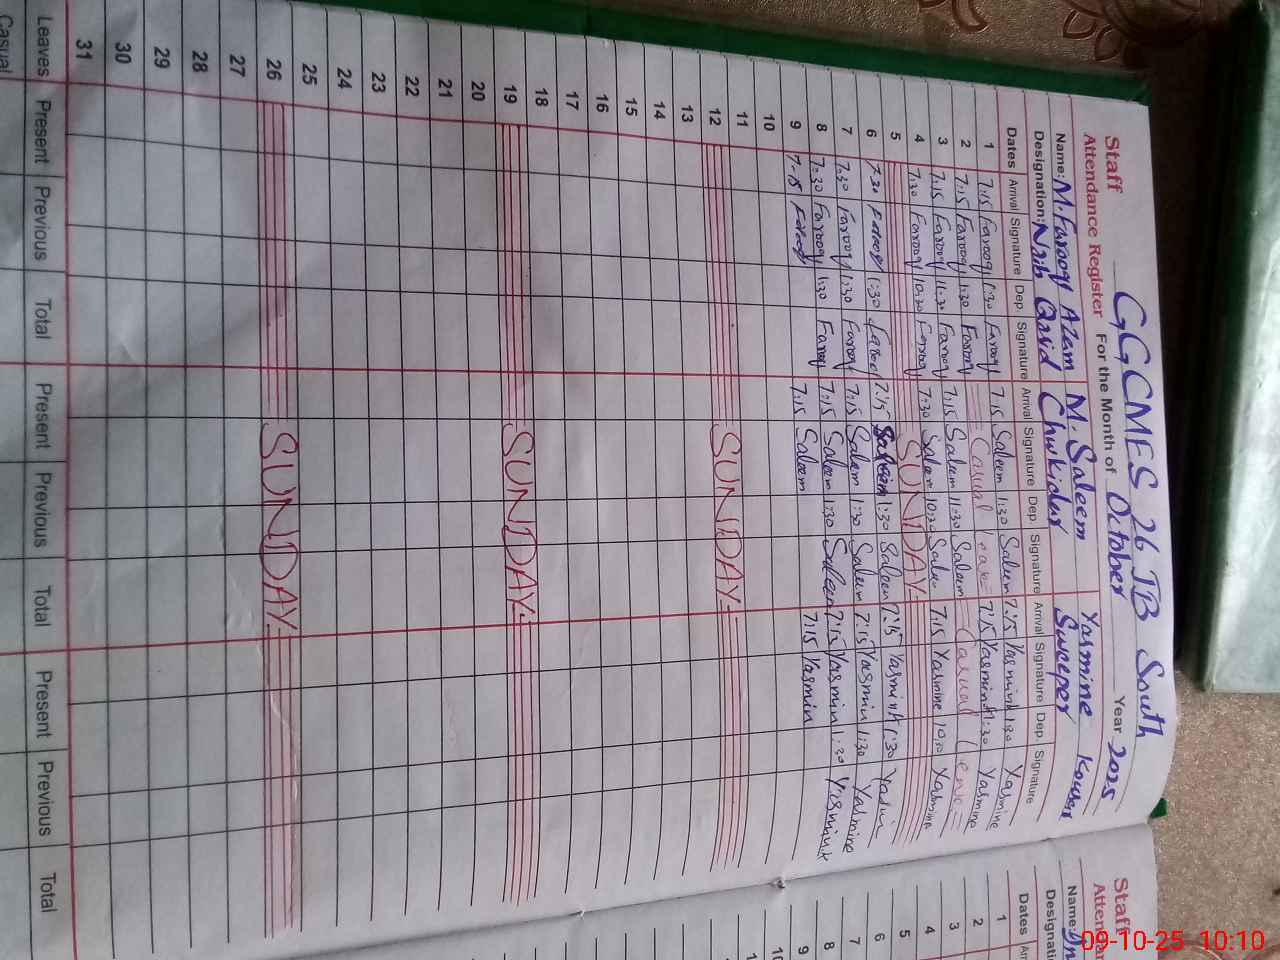 GGCMES 26 JB South
Staff
Attendance Register For the Month of October Year 2025
Name: M. Farooq Azam M. Saleem Yasmine Kouser
Designation: Naib Qasid Chwkidar Sweeper
Dates Arrival Signature Dep. Signature Arrival Signature Dep. Signature Arrival Signature Dep. Signature
1 7:15 Farooq 1:30 Farooq 7:15 Saleem 1:30 Saleem 7:15 Yasmink 1:30 Yasmine
2 7:15 Farooq 1:30 Farooq Casual Leave 7:15 Yasmink 1:30 Yasmine
3 7:15 Farooq 11:30 Farooq 7:15 Saleem 11:30 Saleem Casual Leave
4 7:30 Farooq 10:30 Farooq 7:30 Saleem 10:30 Saleem 7:15 Yasmine 10:30 Yasmine
5 SUNDAY
6 7:30 Farooq 1:30 7:15 Saleem 1:30 Saleem 7:15 Yasmink 1:30
7 7:30 Farooq 1:30 Farooq 7:15 Saleem 1:30 Saleem 7:15 Yasmin 1:30 Yasmine
8 7:30 Farooq 1:30 Farooq 7:15 Saleem 1:30 Saleem 7:15 Yasmin 1:30 Yasmink
9 7-15 Farooq 7:15 Saleem 7:15 Yasmin
10
11
12 SUNDAY
13
14
15
16
17
18
19 SUNDAY
20
21
22
23
24
25
26 SUNDAY
27
28
29
30
31
Leaves Present Previous Total Present Previous Total Present Previous Total
Casual
Staff
Atten
Name:
Designati
Dates
1
2
3
4
5
6
7
8
9
10
09-10-25 10:10